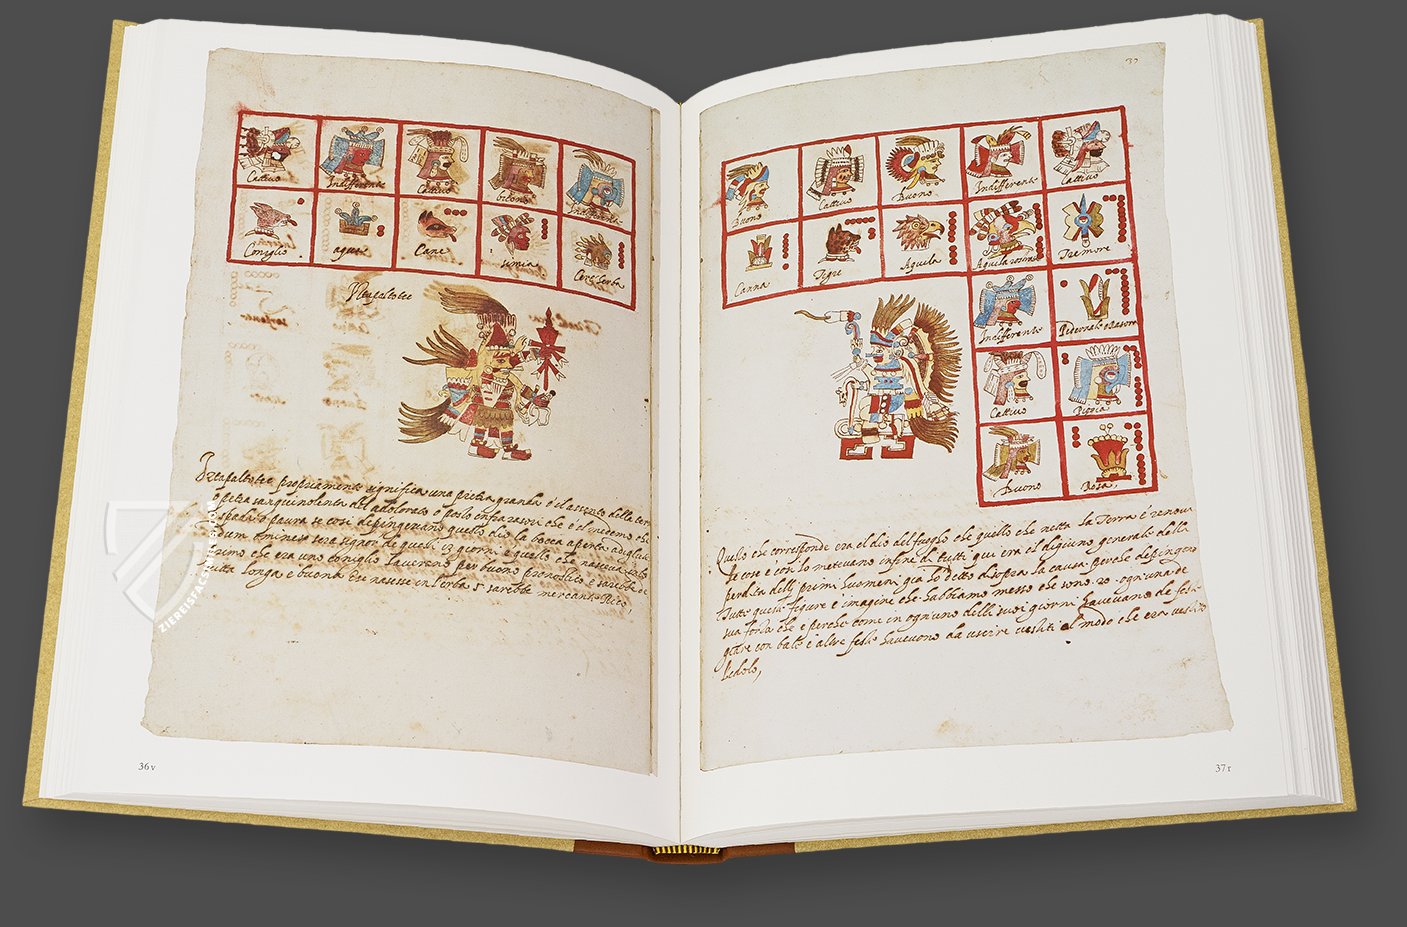 Cattivo
Indifferente
Cattivo
buono
Indifferente
Coniglio
aqua
Cane
simia
Cerç l'erba
Itzapaltotec
Itzapaltotec propriamente significa una pietra grande ò il assento della terra
ò petra sanguinolenta del adolorato ò posto
spada ò paura se così dipingevano questo dio la bocca aperta
ominem era signor de questi 13 giorni e quello che nasceva
primo che era uno coniglio l'avevano per buono pronostico e sarebbe de
vitta longa e buona che nasesse in l'erba 5 sarebbe mercante Rico,
36v
37
Buono
Cattivo
Buono
Indifferente
Cattivo
Canna
Tigre
Aquila
Aquila
Tremore
Indifferente
Pedernale ò Rasore
Cattivo
Piogia
Buono
Rosa,
Quello che corresponde era el dio del fuogho che quello che netta la Terra e renova
le cose e così lo metevano in fine di tutti qui era il digiuno generale della
perdita delli primi huomeni gia lo detto di sopra la causa perche depingeno
tutte queste figure e imagine che habbiamo messo che sono 20. ogn'una de
sua forza che e perche come in ogn'uno delli suoi giorni havevamo de feste
giare con balo e altre feste havevono da uscire vestiti al modo che era vestito
l'idolo,
37r
ZIEREIS FACSIMILES